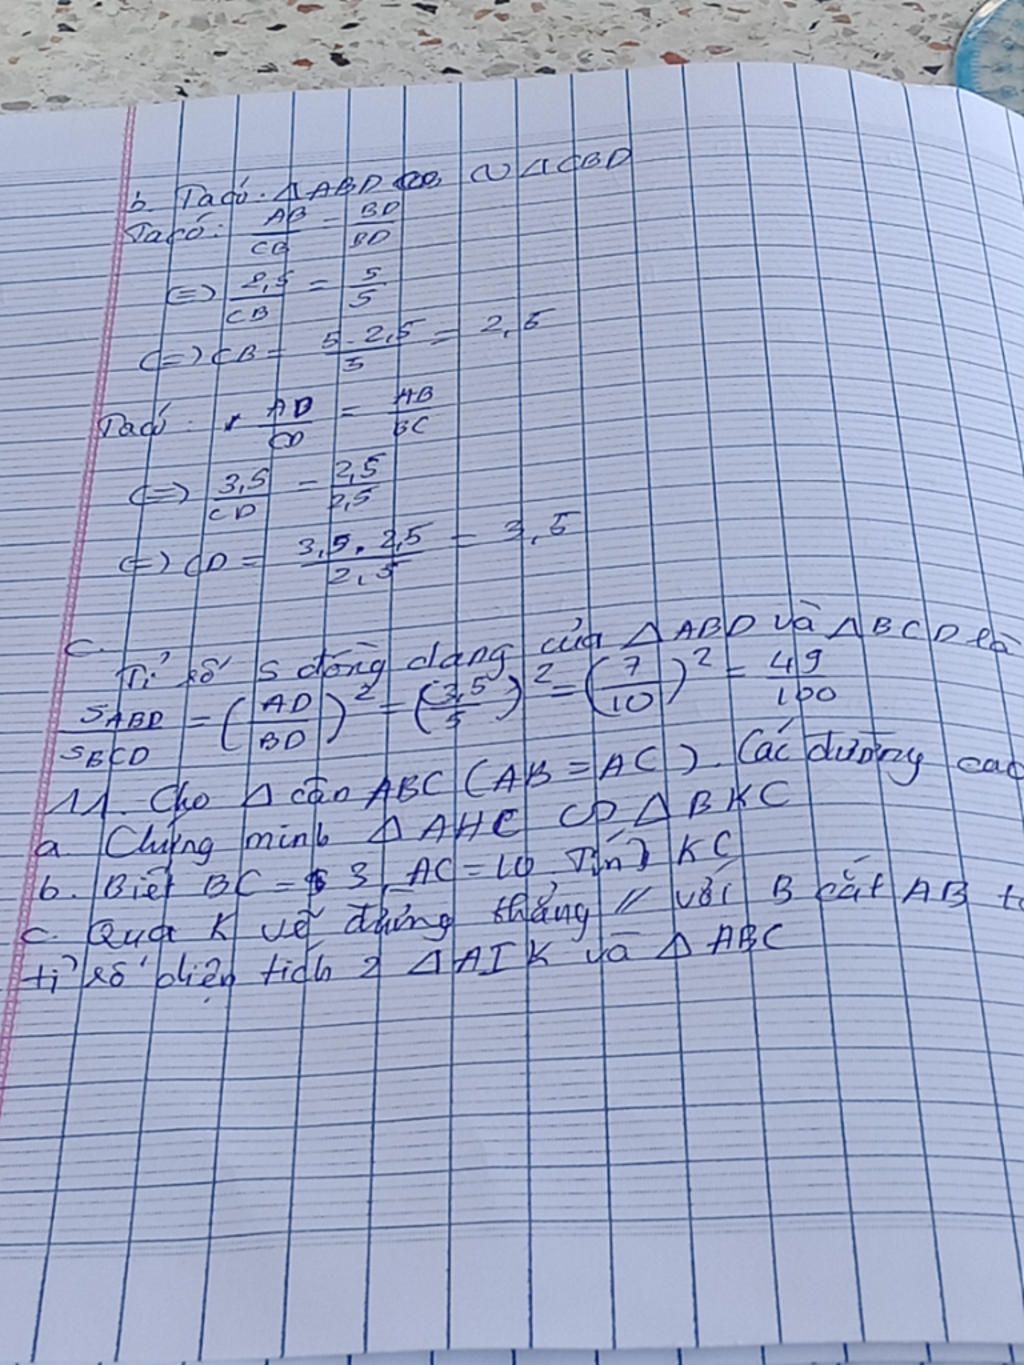 b. Ta có: △ABD ∽ △CBD
Ta có: AB/CB = BD/BD
(=) 2,5/CB = 5/5
(=) CB = 5.2,5/5 = 2,5
Ta có: AD/CD = AB/BC
(=) 3,5/CD = 2,5/2,5
(=) CD = 3,5.2,5/2,5 = 3,5
c.
Tỉ số S đồng dạng của △ABD và △BCD là
SABD/SBCD = (AD/BD)² = (3,5/5)² = (7/10)² = 49/100
11. Cho △ cân ABC (AB = AC). Các đường cao
a. Chứng minh △AHC ∽ △BKC
b. Biết BC = 3, AC = 10 Tính KC
c. Qua K vẽ đường thẳng // với B cắt AB
tỉ số diện tích 2 △AIK và △ABC